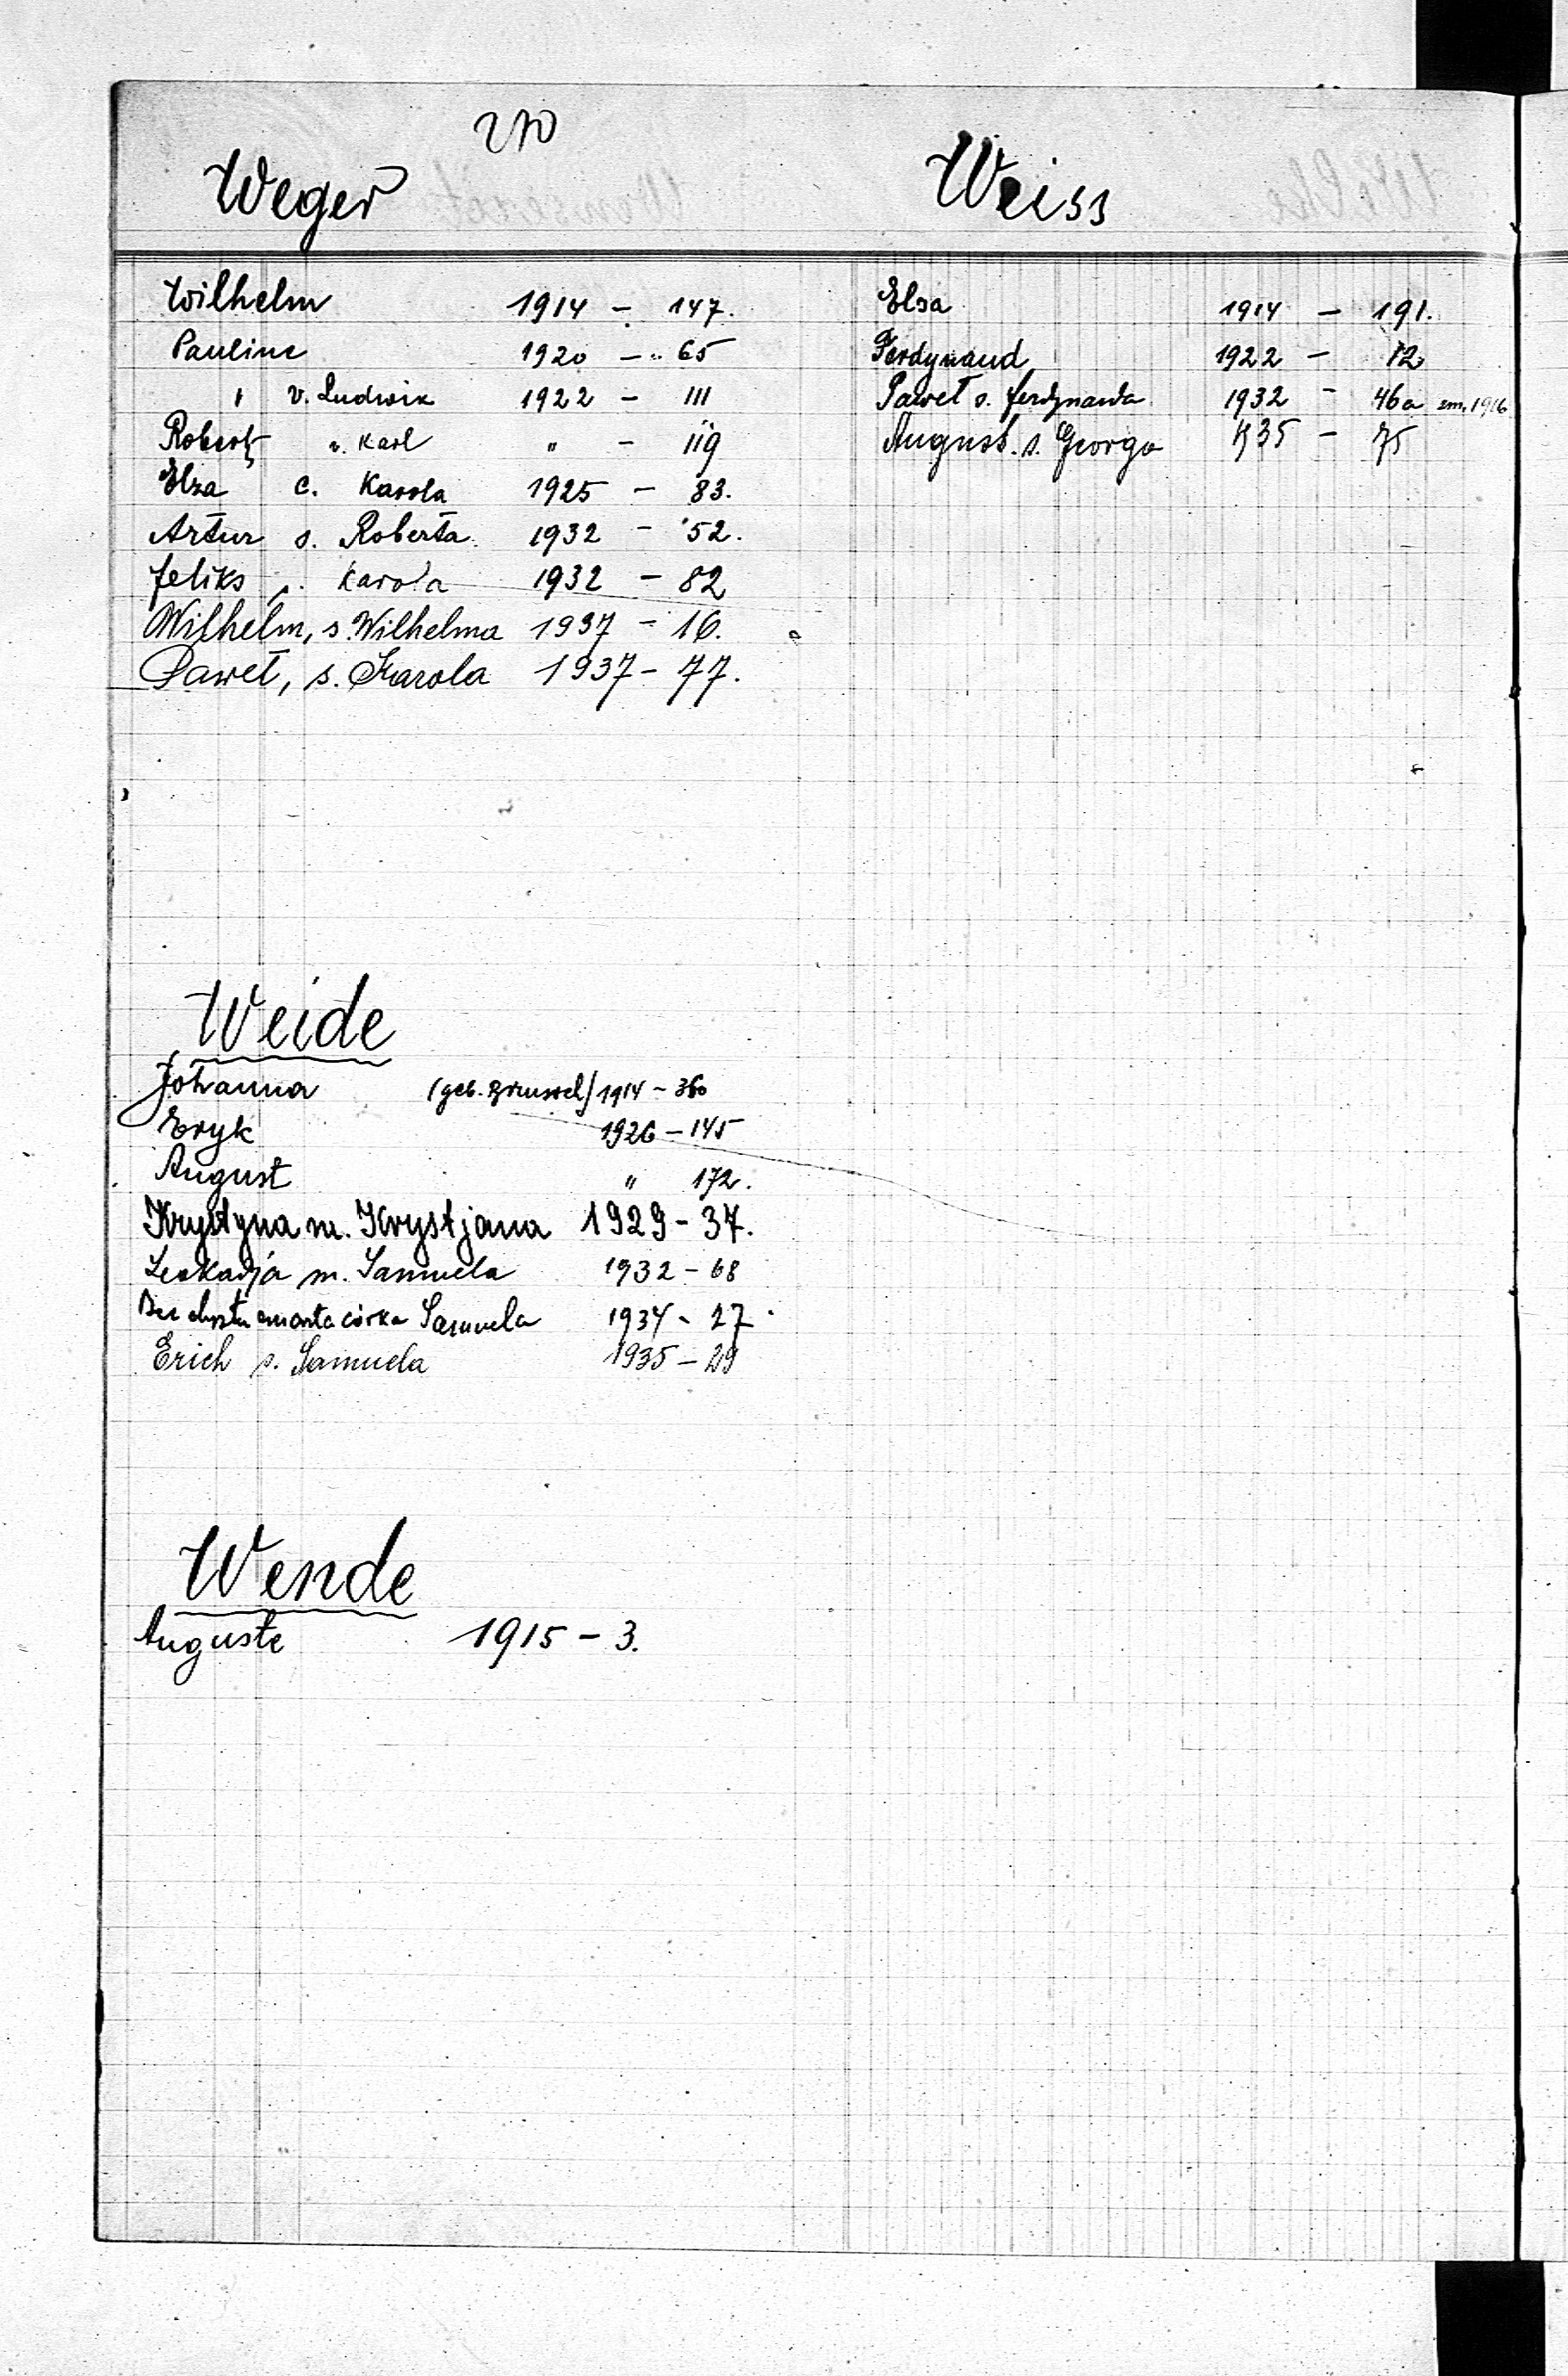 270
Weger
Wilhelm 1914 - 147.
Pauline 1920 - " 65
" v. Ludwik 1922 - 111
Robert v. Karl " - 119
Elza c. Karola 1925 - 83.
Artur s. Roberta 1932 - 52.
Feliks s. Karola 1932 - 82
Wilhelm, s. Wilhelma 1937 - 16.
Paweł, s. Karola 1937 - 77.
Weide
Johanna (geb. 1914 - 360
Eryk 1926 - 145
August " 172.
Krystyna m. Krystjana 1929 - 37.
Leokadja m. Samuela 1932 - 68
Bez chrztu zmarła córka Samuela 1934 - 27
Erich s. Samuela 1935 - 29
Wende
Auguste 1915 - 3.
Weiss
Elsa 1914 - 191.
Ferdynand 1922 - 12
Paweł s. Ferdynanda 1932 - 46a zm. 1916
August s. George 1935 - 75